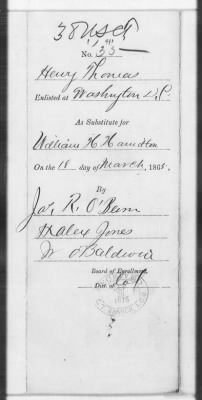 38 USCT
No. 33
Henry Thomas
Enlisted at Washington D.C.
As Substitute for
William H Hamilton
On the 18 day of March, 1865.
By
Jas, R. O'Beirn
H Alex Jones
W O Baldwin
Board of Enrollment,
Dist. of Col.